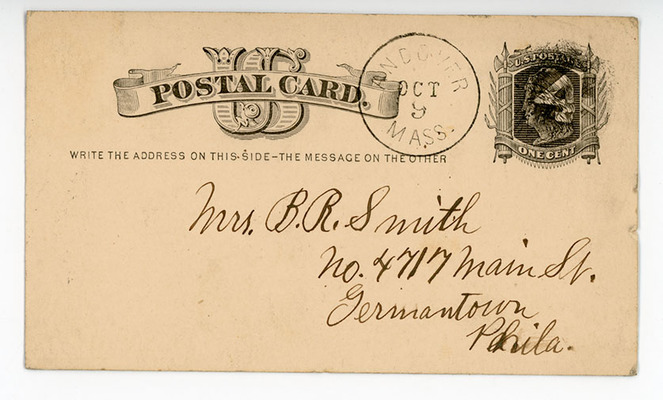 US
POSTAL CARD.
ANDOVER
OCT
9
MASS.
U.S. POSTAGE
ONE CENT
WRITE THE ADDRESS ON THIS SIDE-THE MESSAGE ON THE OTHER
Mrs. B. R. Smith
No. 4717 Main St.
Germantown
Phila.